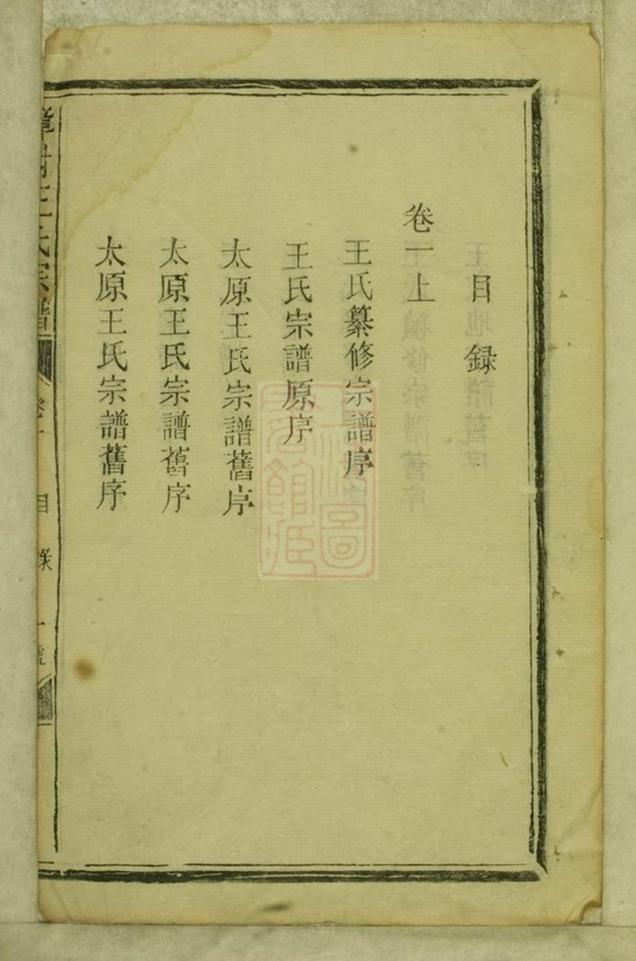 目録
卷一上
王氏纂修宗譜序
王氏宗譜原序
太原王氏宗譜舊序
太原王氏宗譜舊序
太原王氏宗譜舊序
王氏宗譜
目錄